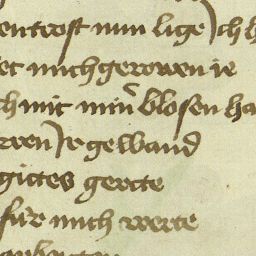 entrost nun lige Ich h
et mich gerowen ie
ch mit minen blosen ha
rren Ir gewand
gittes gerete
fur mich werte